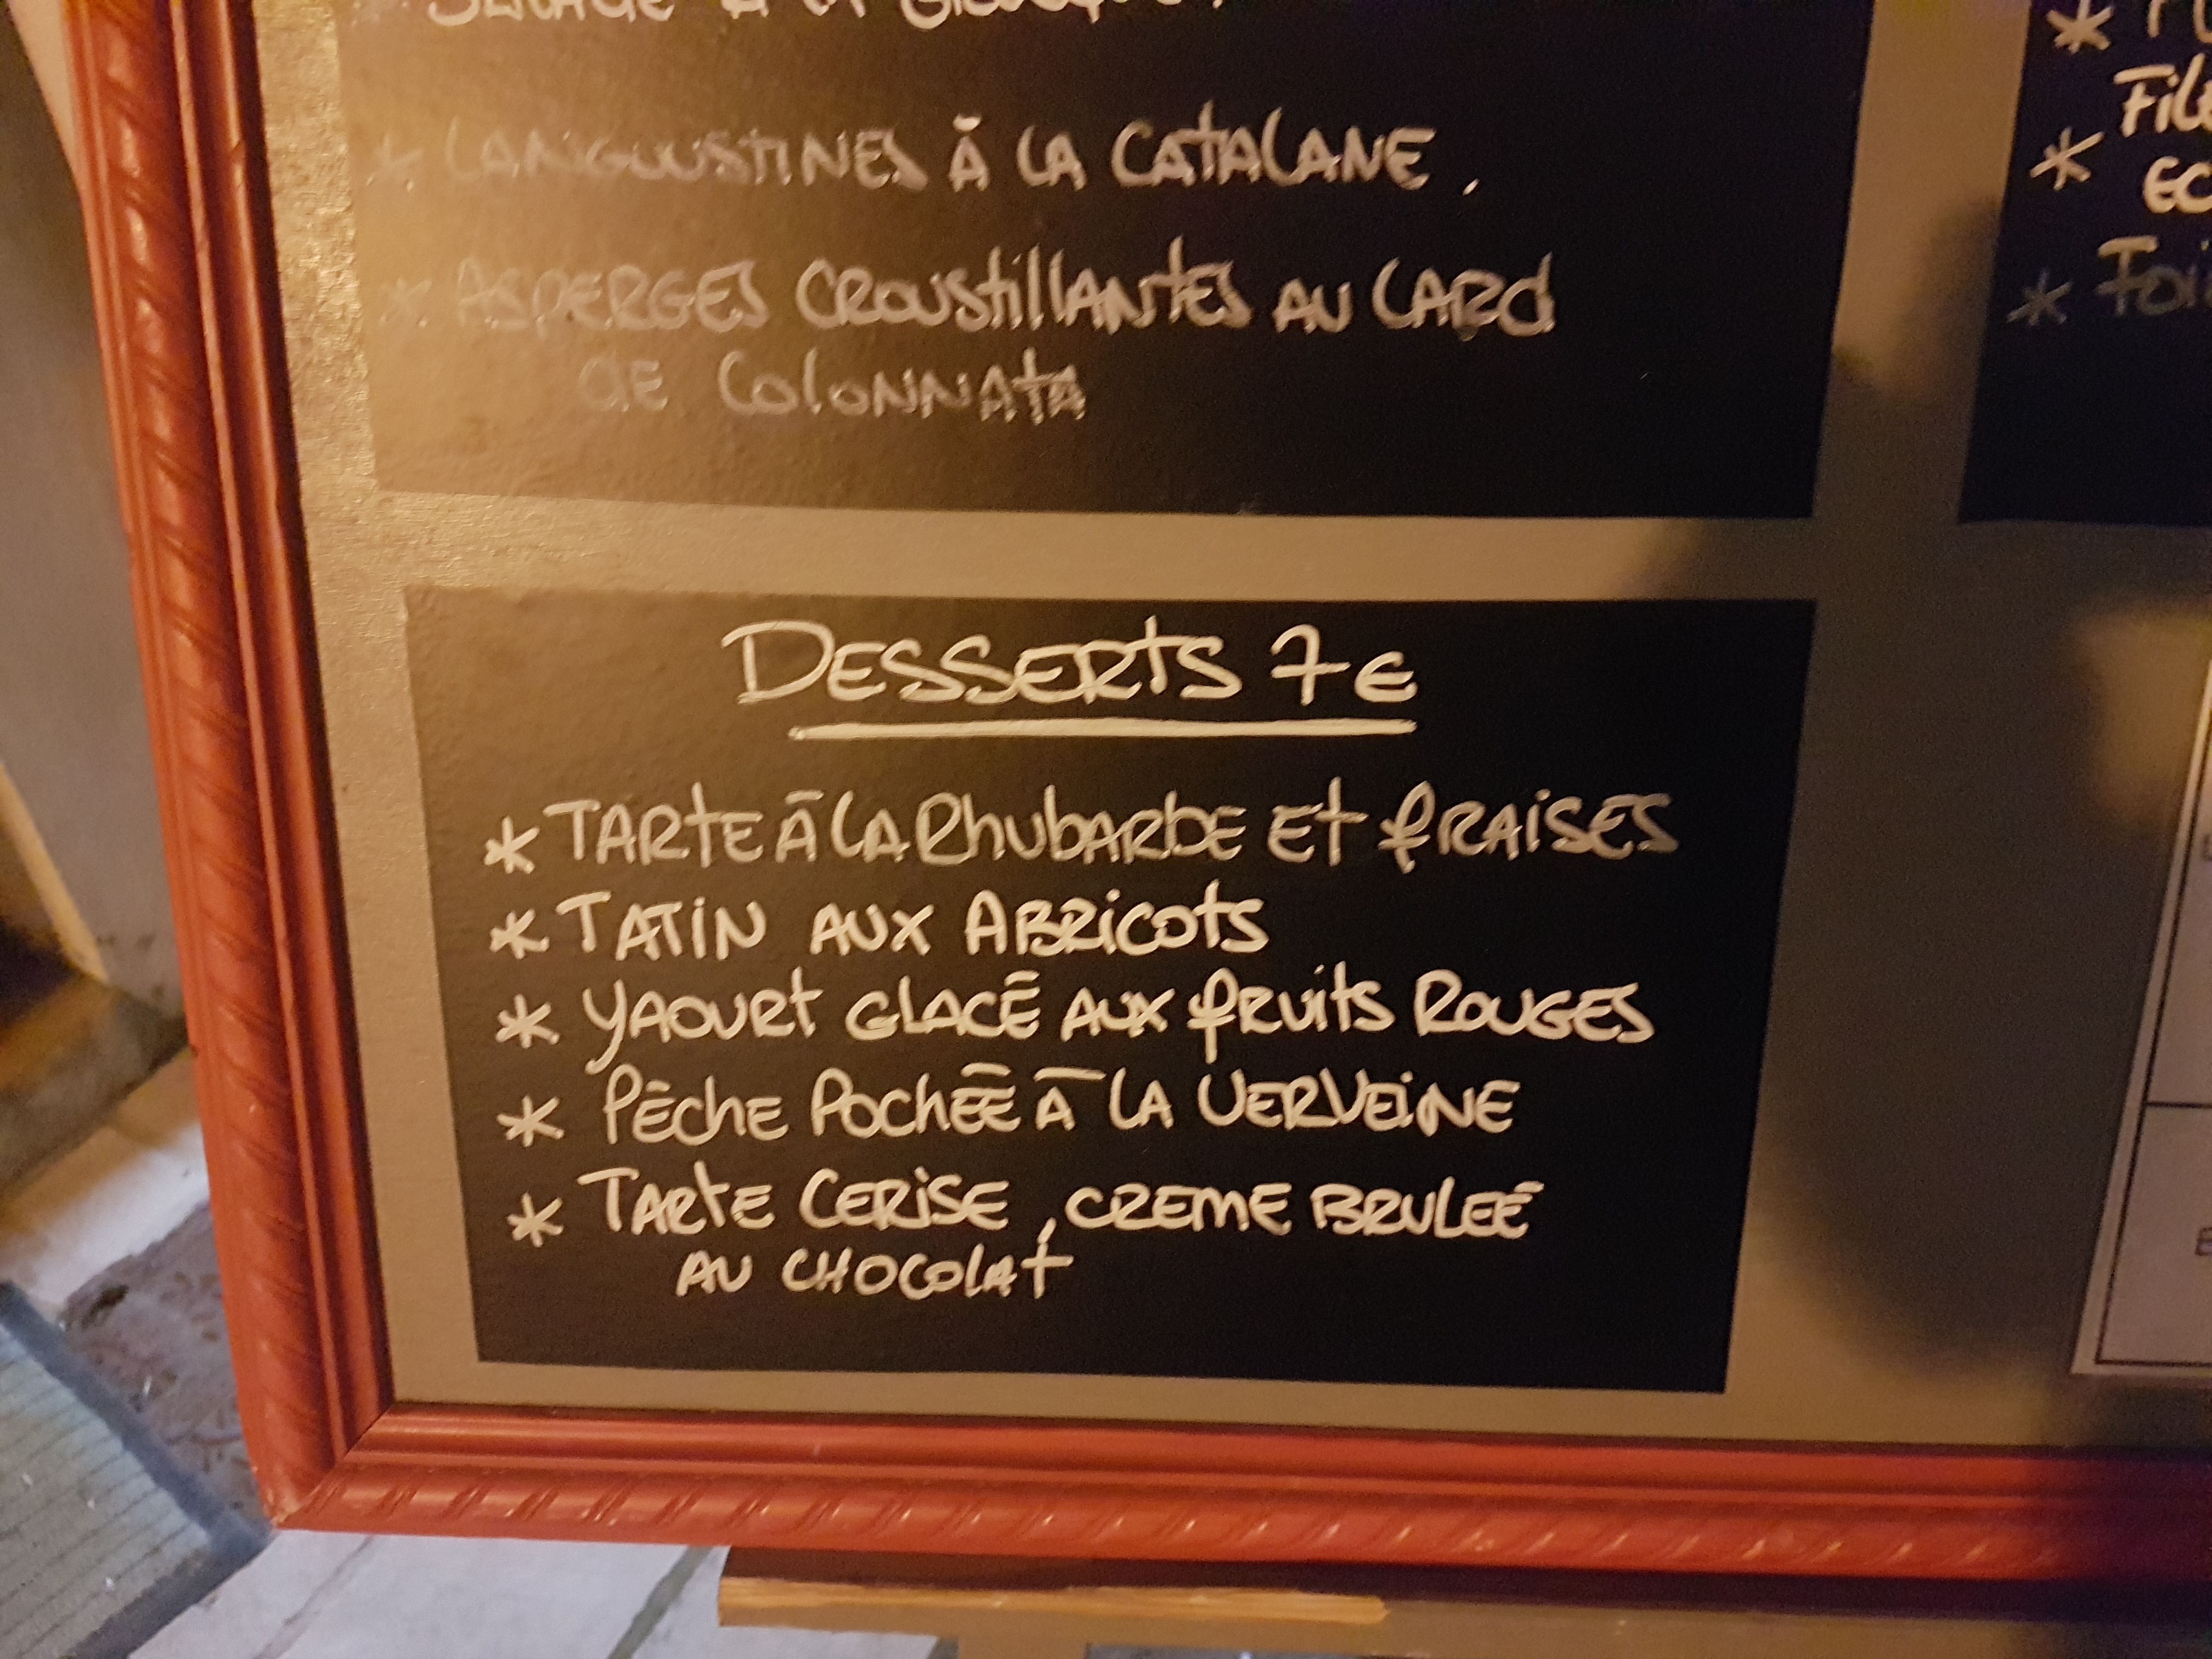 * LANGOUSTINES À LA CATALANE.
* ASPERGES CROUSTILLANTES AU LARD
DE COLONNATA
DESSERTS 7€
* TARTE À LA RHUBARBE ET FRAISES
* TATIN AUX ABRICOTS
* YAOURT GLACÉ AUX FRUITS ROUGES
* PÊCHE POCHÉE À LA VERVEINE
* TARTE CERISE, CREME BRULEÉ
AU CHOCOLAT